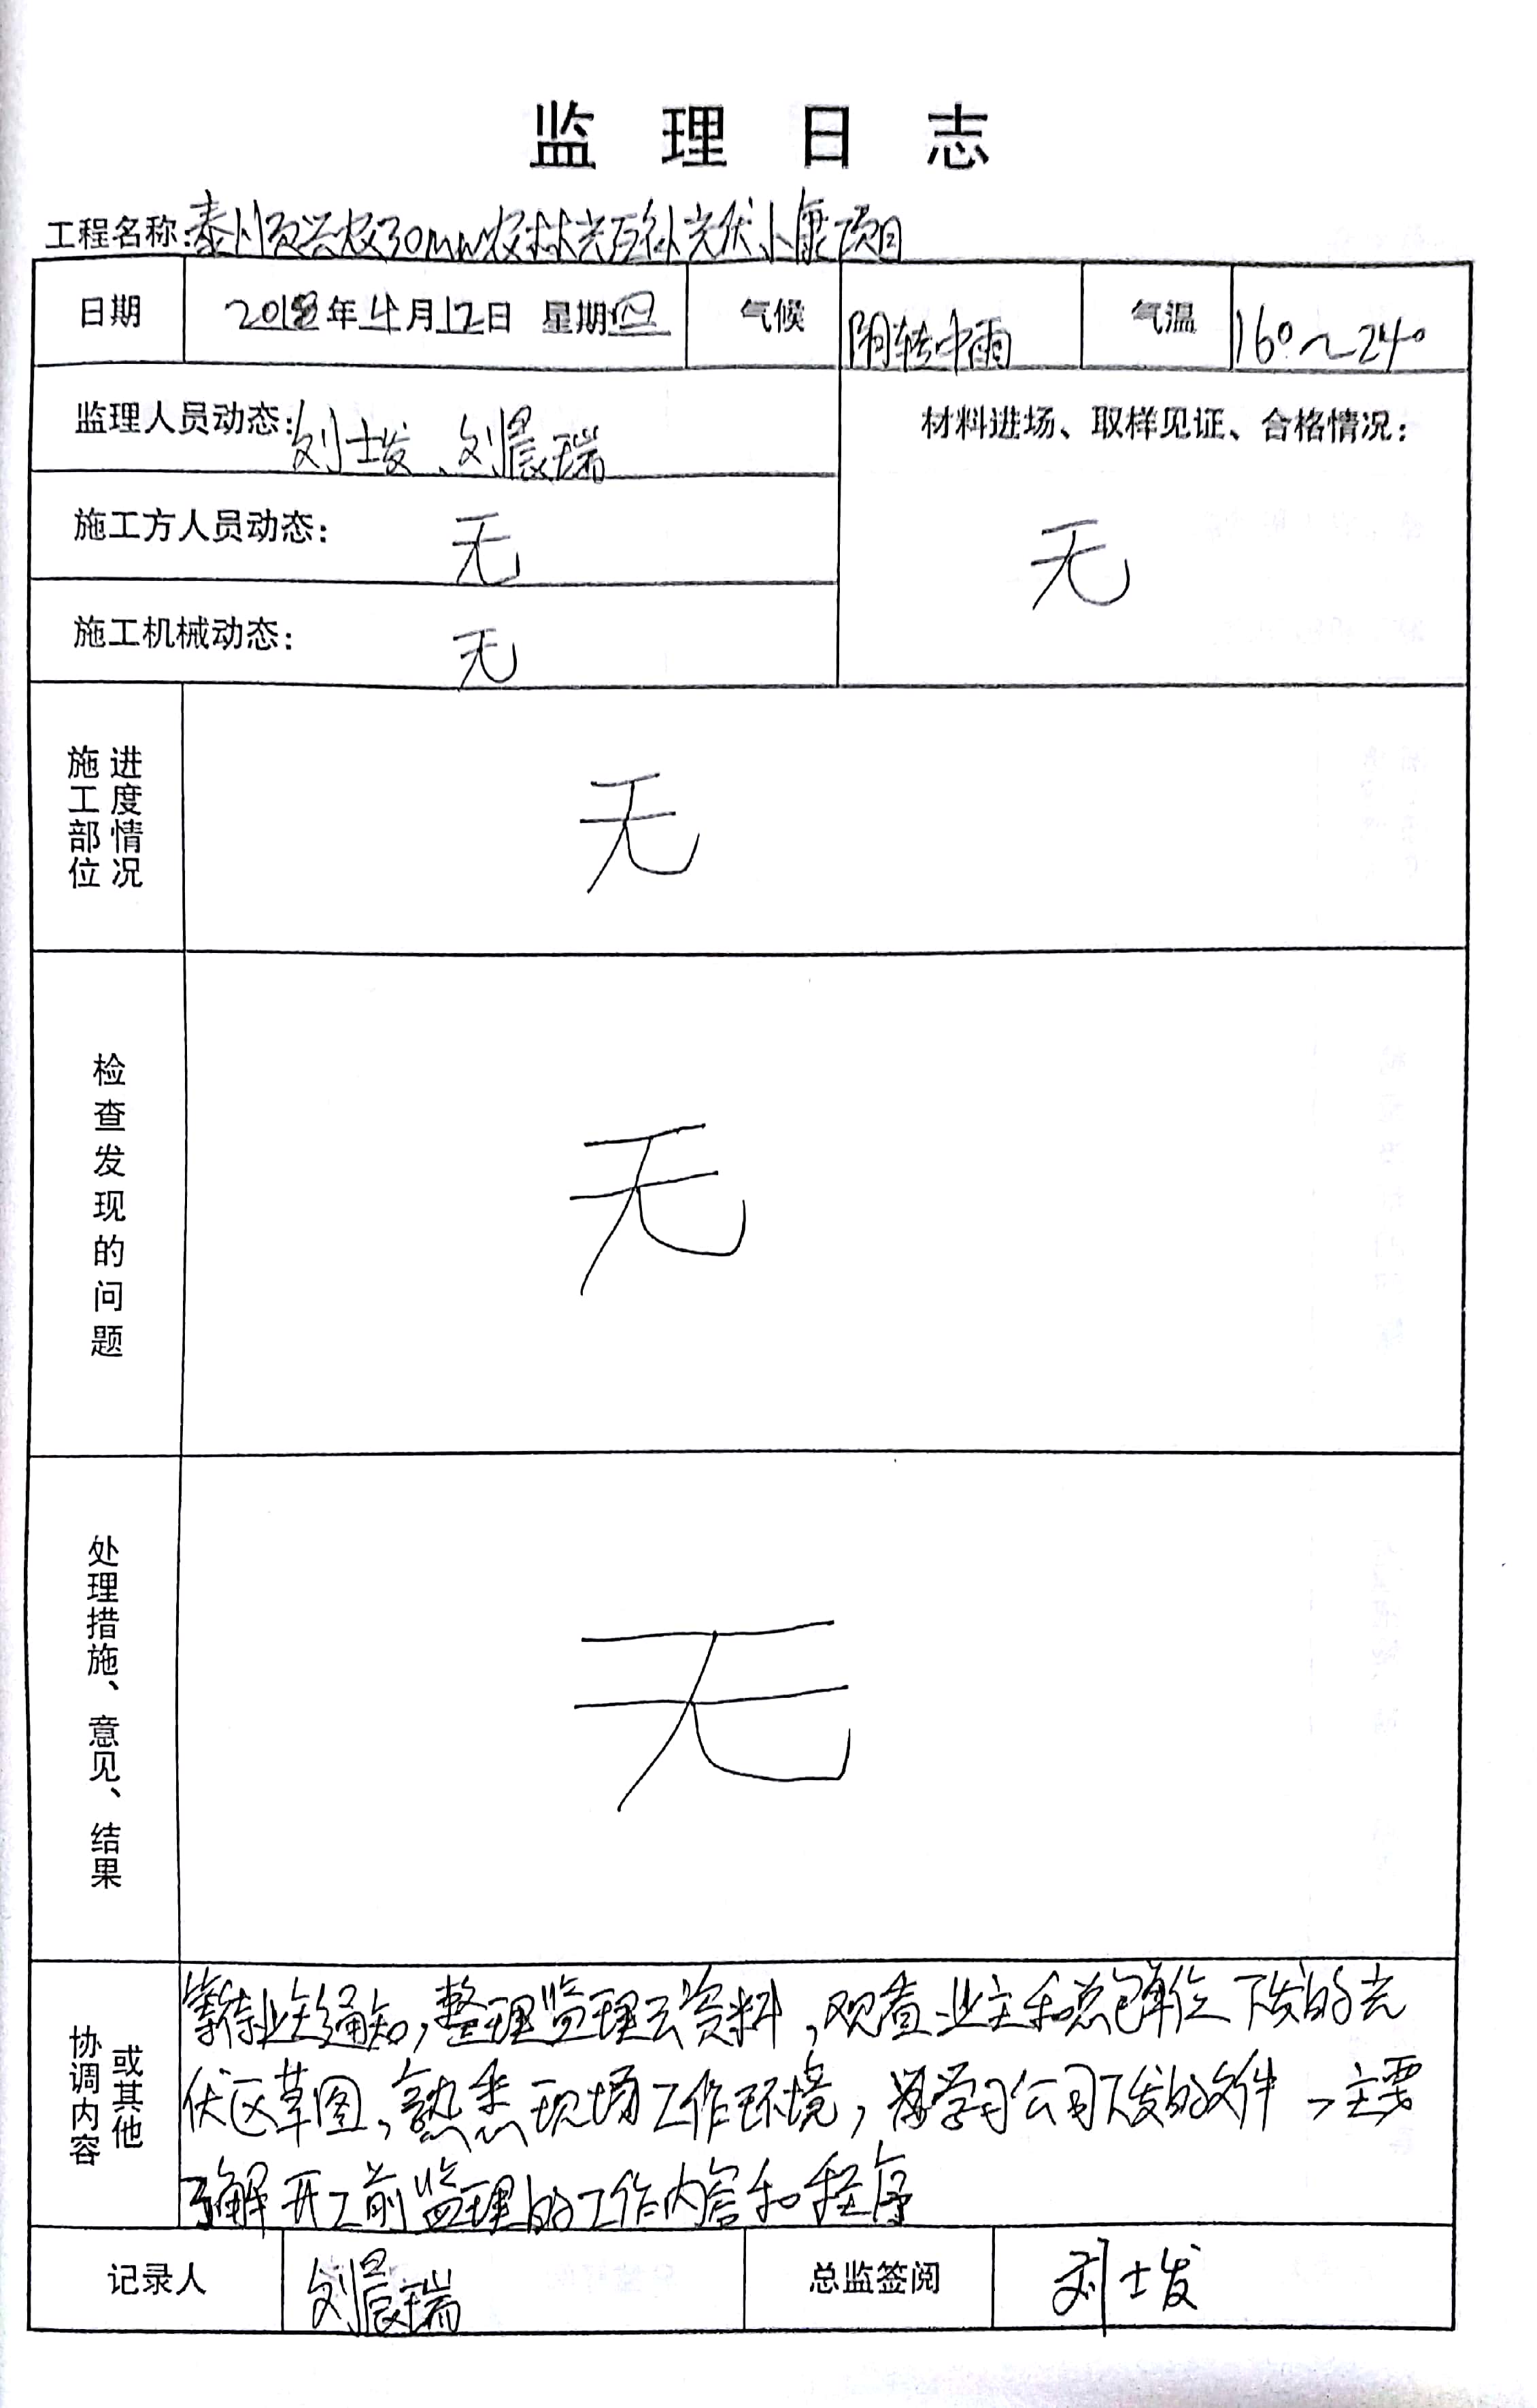 监理日志
工程名称:泰州兴农30MW农林光互补光伏小康项目
日期 2018年4月12日 星期四 气候 阴转中雨 气温 16°~24°
监理人员动态: 刘士发、刘晨瑞
材料进场、取样见证、合格情况:
无
施工方人员动态: 无
施工机械动态: 无
施工部位
进度情况
无
检查发现的问题
无
处理措施、意见、结果
无
协调内容
或其他
等待业主通知,整理监理云资料,观查业主和总包单位下发的光
伏区草图,熟悉现场工作环境,学习公司下发的文件,主要
了解开工前监理的工作内容和程序
记录人 刘晨瑞 总监签阅 刘士发